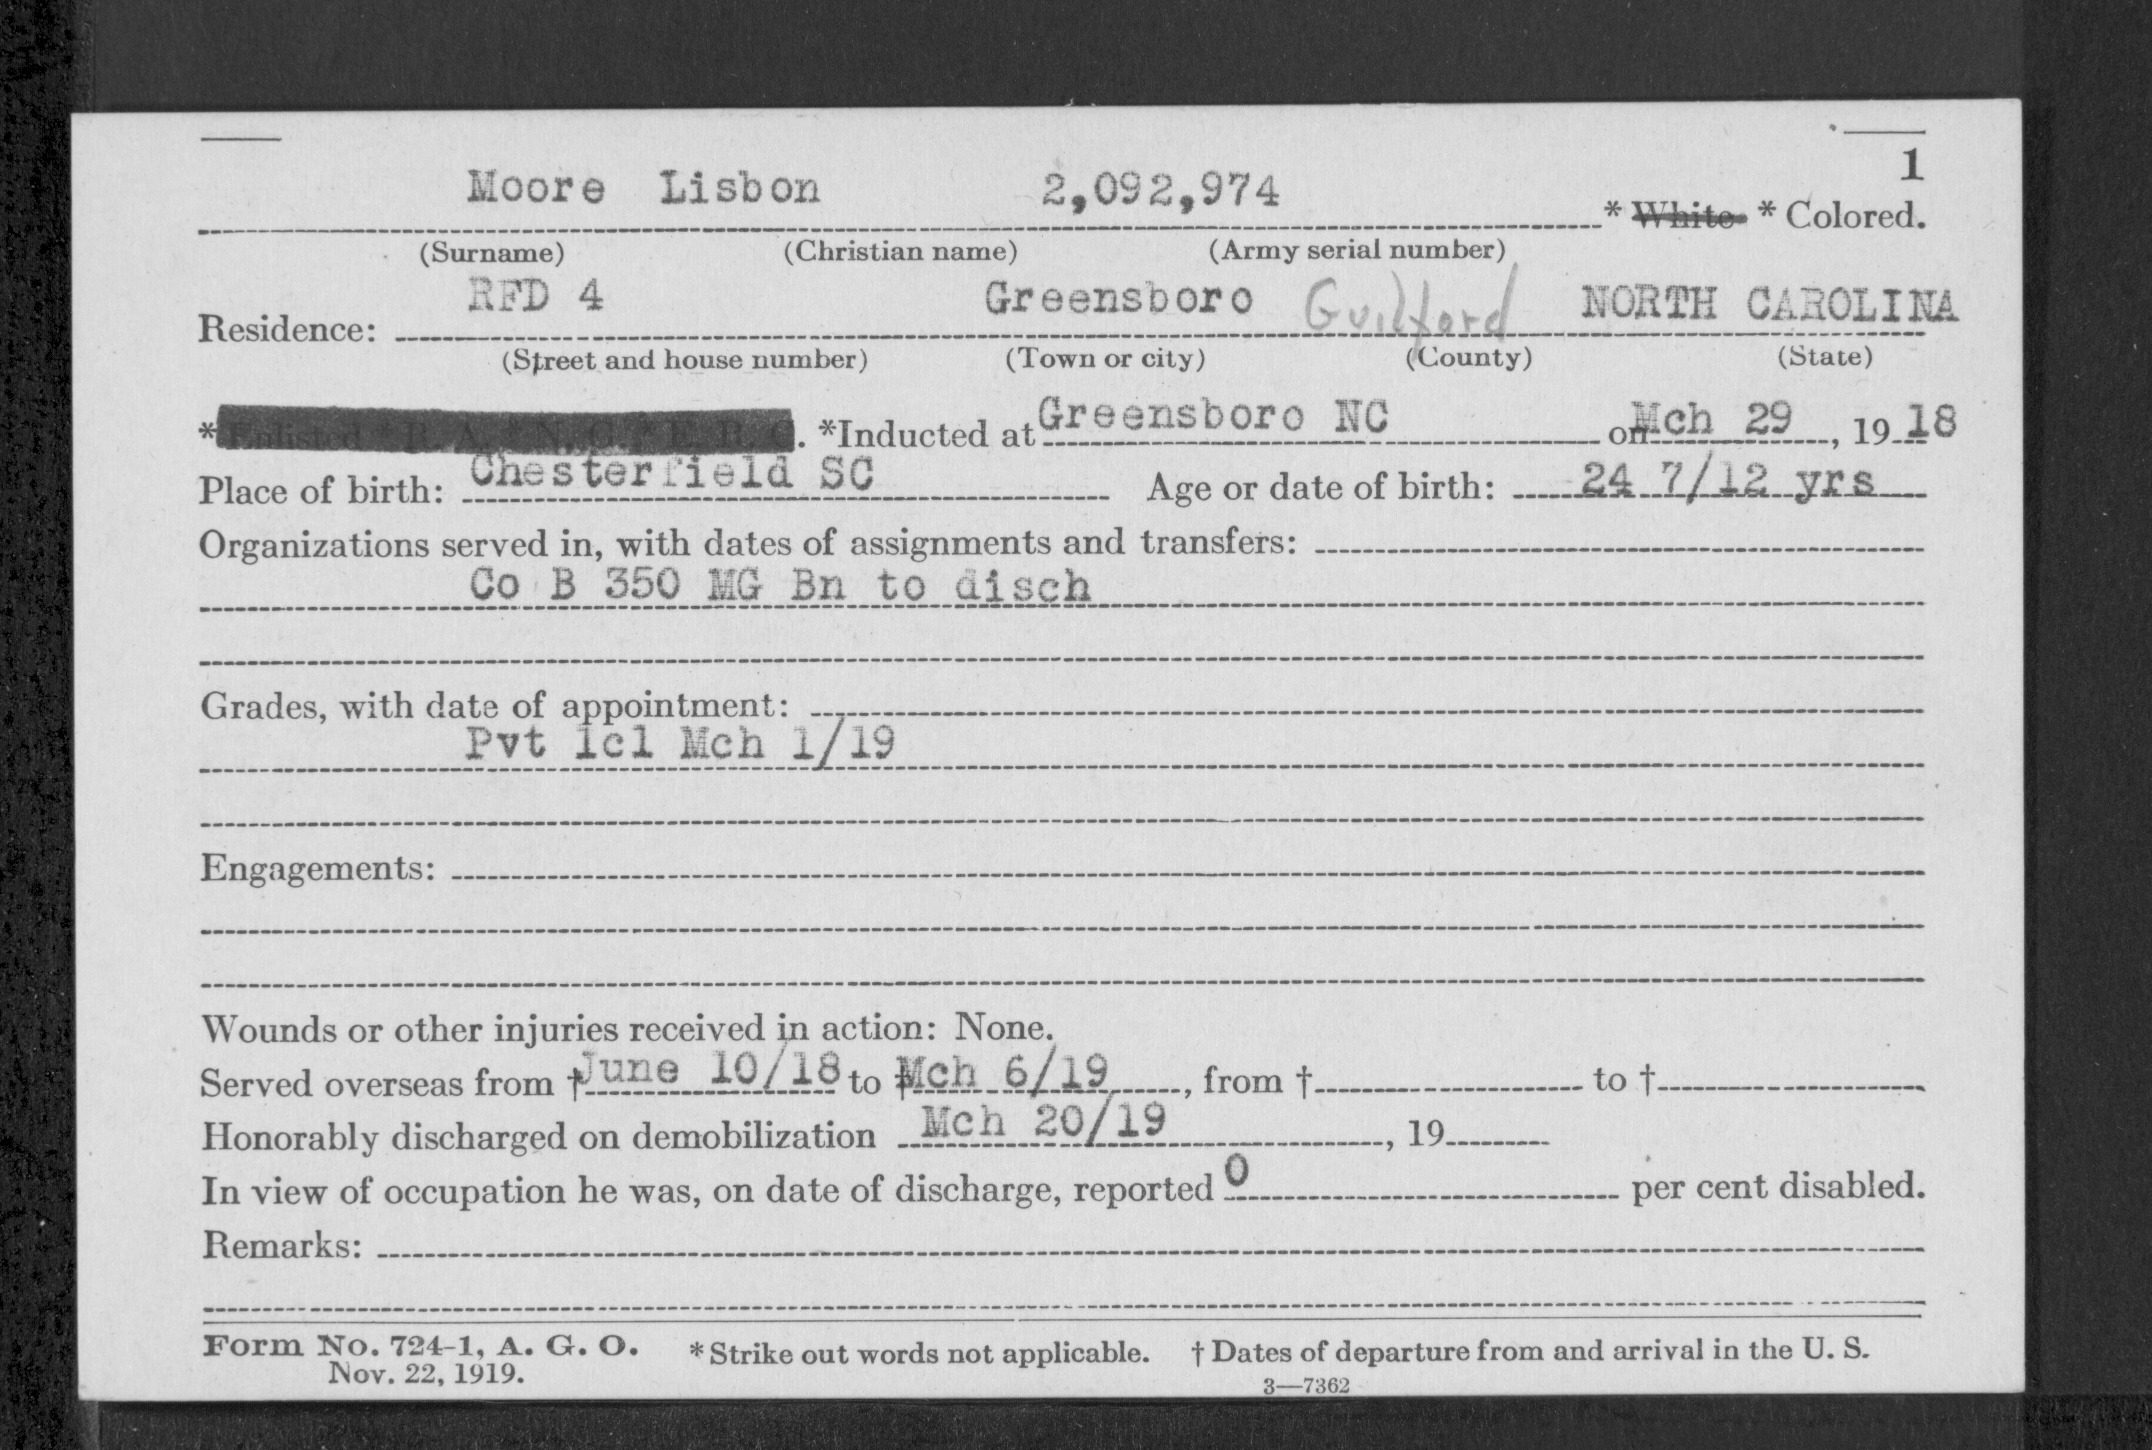 1
Moore Lisbon 2,092,974 * White * Colored.
(Surname) (Christian name) (Army serial number)
RFD 4 Greensboro Guilford NORTH CAROLINA
Residence:
(Street and house number) (Town or city) (County) (State)
*Enlisted * R. A. * N. G. * E. R. C. *Inducted at Greensboro NC on Mch 29, 19 18
Place of birth: Chesterfield SC Age or date of birth: 24 7/12 yrs
Organizations served in, with dates of assignments and transfers:
Co B 350 MG Bn to disch
Grades, with date of appointment:
Pvt 1cl Mch 1/19
Engagements:
Wounds or other injuries received in action: None.
Served overseas from † June 10/18 to † Mch 6/19, from † to †
Honorably discharged on demobilization Mch 20/19, 19
In view of occupation he was, on date of discharge, reported 0 per cent disabled.
Remarks:
Form No. 724-1, A. G. O. * Strike out words not applicable. † Dates of departure from and arrival in the U. S.
Nov. 22, 1919.
3—7362